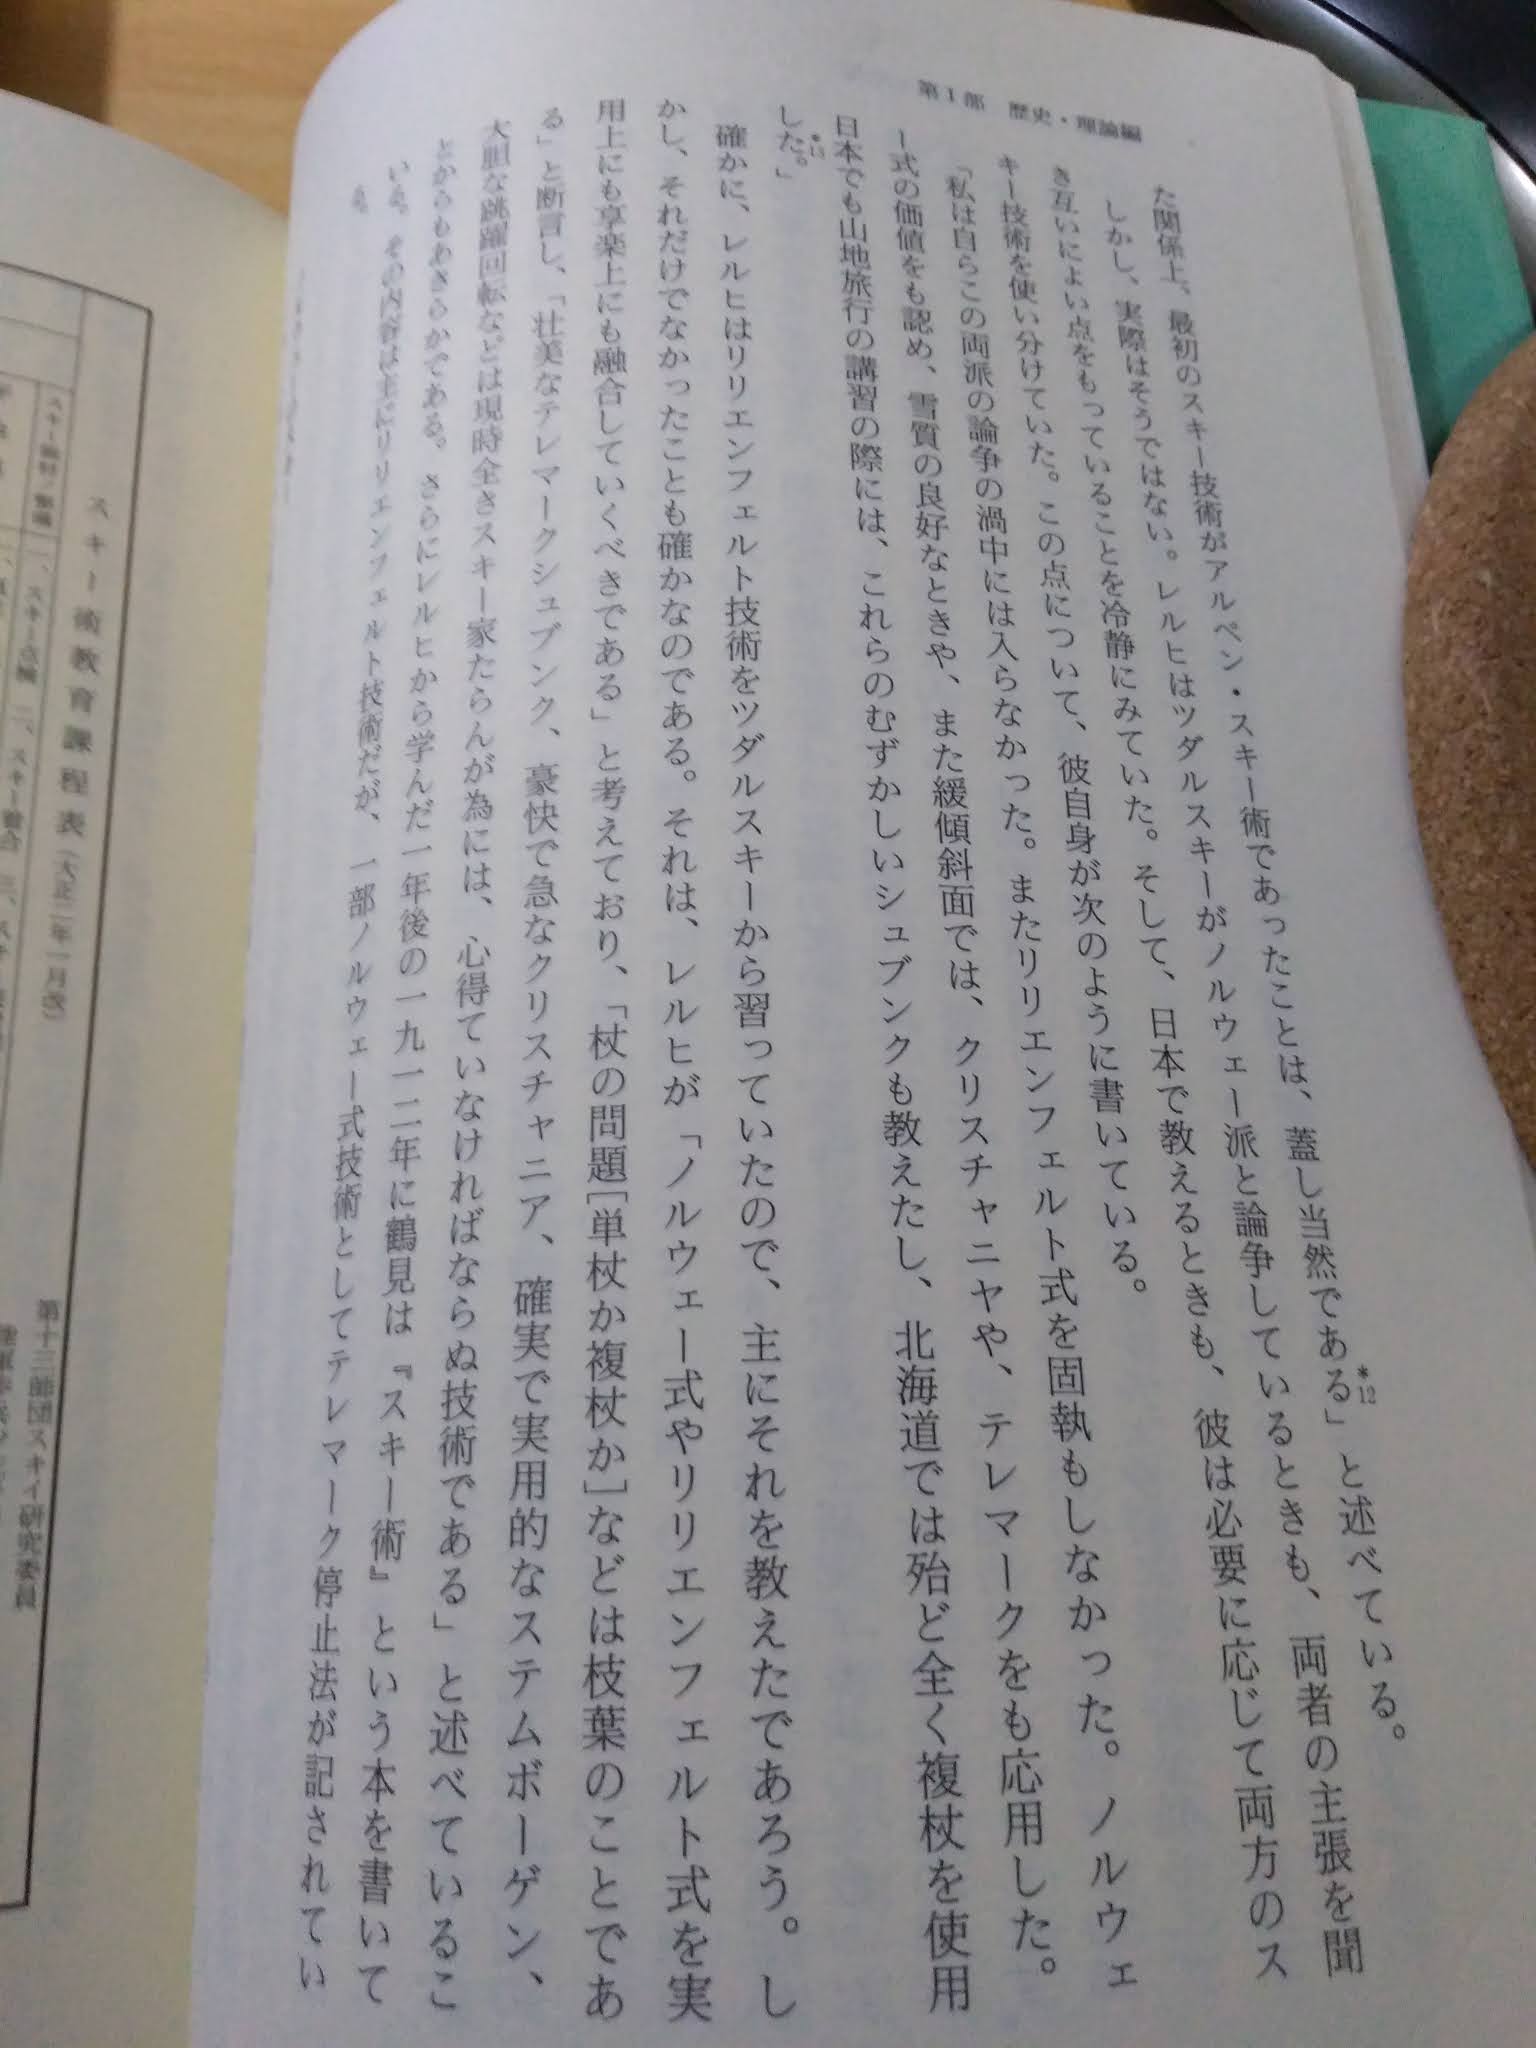 第1部　歴史・理論編
た関係上、最初のスキー技術がアルペン・スキー術であったことは、蓋し当然である」*12と述べている。
しかし、実際はそうではない。レルヒはツダルスキーがノルウェー派と論争しているときも、両者の主張を聞
き互いによい点をもっていることを冷静にみていた。そして、日本で教えるときも、彼は必要に応じて両方のス
キー技術を使い分けていた。この点について、彼自身が次のように書いている。
「私は自らこの両派の論争の渦中には入らなかった。またリリエンフェルト式を固執もしなかった。ノルウェ
ー式の価値をも認め、雪質の良好なときや、また緩傾斜面では、クリスチャニヤや、テレマークをも応用した。
日本でも山地旅行の講習の際には、これらのむずかしいシュブンクも教えたし、北海道では殆ど全く複杖を使用
した。」*13
確かに、レルヒはリリエンフェルト技術をツダルスキーから習っていたので、主にそれを教えたであろう。し
かし、それだけでなかったことも確かなのである。それは、レルヒが「ノルウェー式やリリエンフェルト式を実
用上にも享楽上にも融合していくべきである」と考えており、「杖の問題［単杖か複杖か］などは枝葉のことであ
る」と断言し、「壮美なテレマークシュブンク、豪快で急なクリスチャニア、確実で実用的なステムボーゲン、
大胆な跳躍回転などは現時全きスキー家たらんが為には、心得ていなければならぬ技術である」と述べているこ
とからもあきらかである。さらにレルヒから学んだ一年後の一九一二年に鶴見は『スキー術』という本を書いて
いる。その内容は主にリリエンフェルト技術だが、一部ノルウェー式技術としてテレマーク停止法が記されてい
る。
スキー術教育課程表（大正二年一月改）
第十三師団スキイ研究委員
一、スキー点検　二、スキー着合　三、